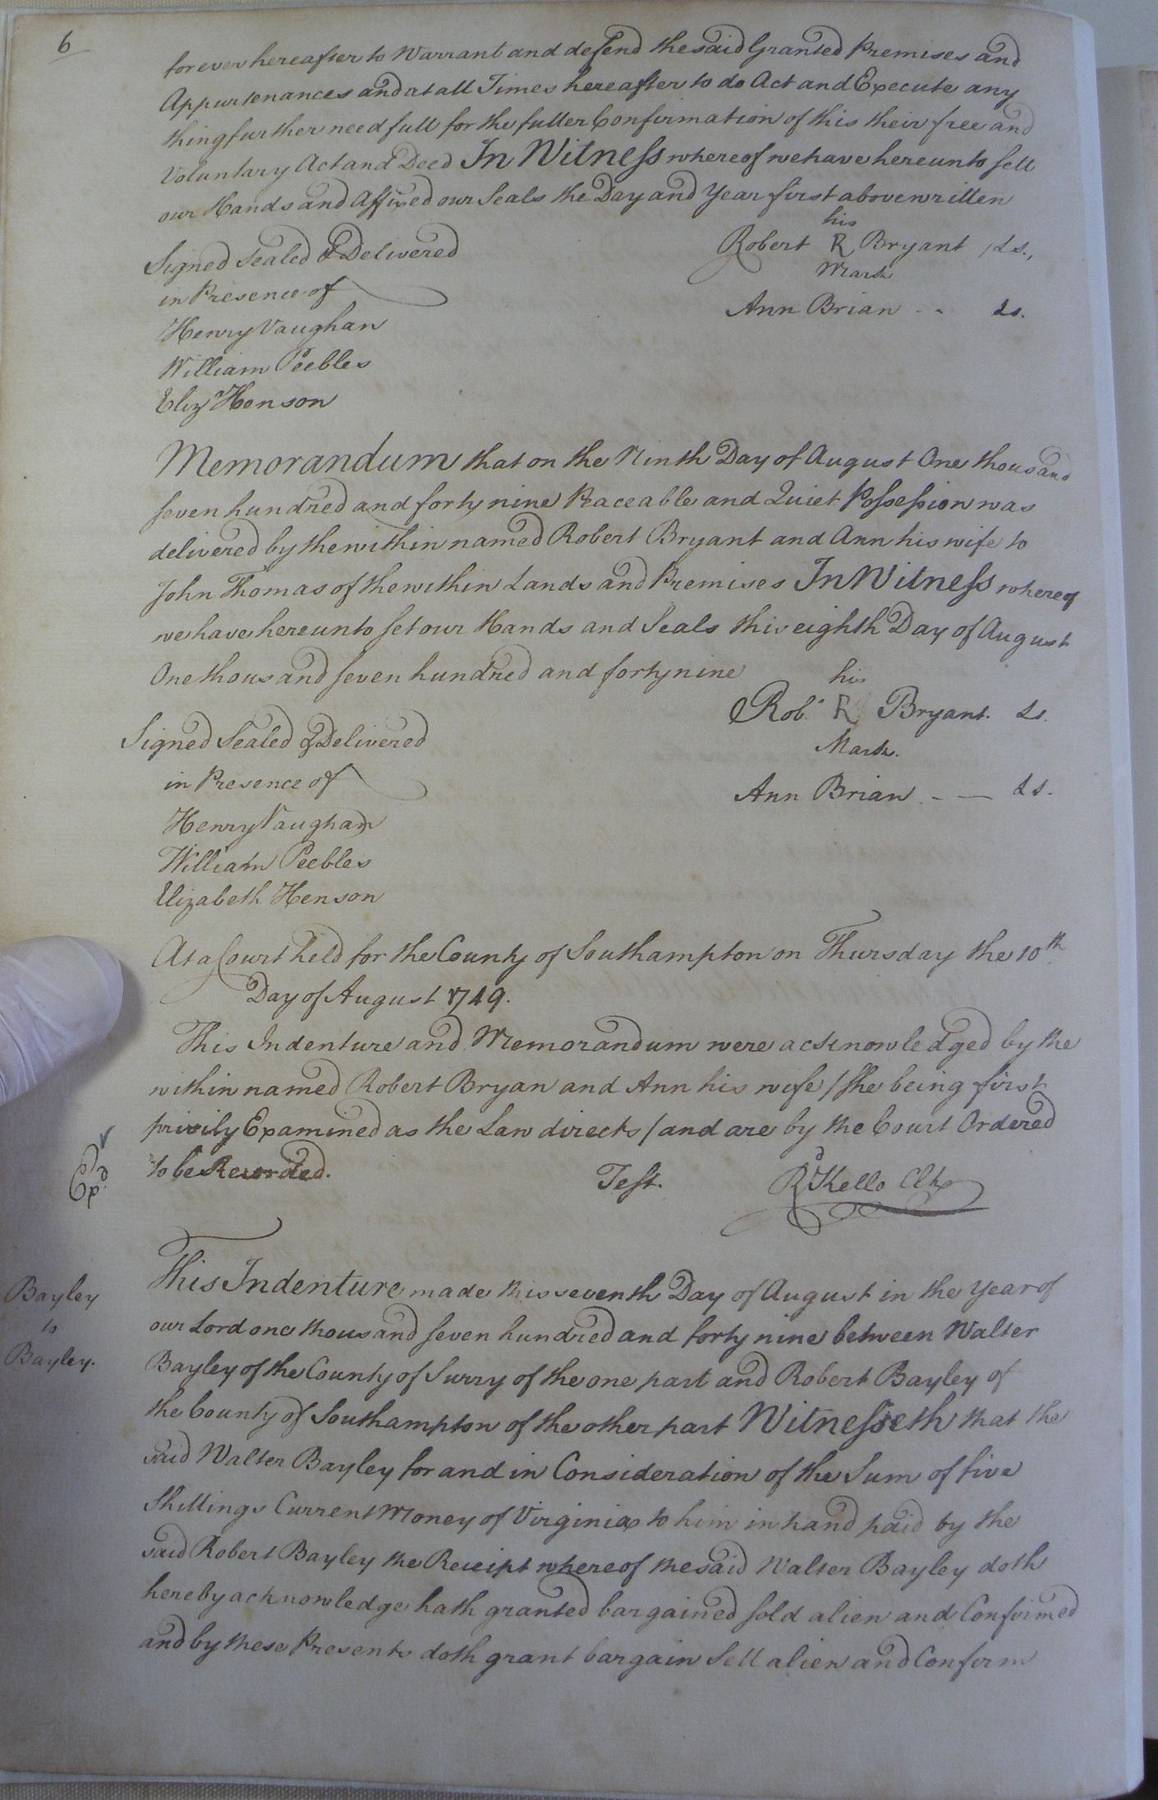 6
forever hereafter to Warrant and defend the said Granted Premises and
Appurtenances and at all Times hereafter to do Act and Execute any
thing further needfull for the fuller Confirmation of this their free and
Voluntary Act and Deed In Witness whereof we have hereunto sett
our Hands and Affixed our Seals the Day and Year first above written
his
Signed Sealed & Delivered Robert R Bryant Ls.
Mark
in Presence of Ann Brian - - Ls.
Henry Vaughan
William Peebles
Eliz Henson
Memorandum that on the Ninth Day of August One thousand
seven hundred and forty nine Peaceable and Quiet Possession was
delivered by the within named Robert Bryant and Ann his wife to
John Thomas of the within Lands and Premises In Witness whereof
we have hereunto set our Hands and Seals this eighth Day of August
One thousand seven hundred and forty nine
his
Rob.t R Bryant. Ls.
Signed Sealed & Delivered Mark.
in Presence of Ann Brian - — Ls.
Henry Vaughan
William Peebles
Elizabeth Henson
At a Court held for the County of Southampton on Thursday the 10th
Day of August 1749.
This Indenture and Memorandum were acknowledged by the
within named Robert Bryan and Ann his wife /she being first
privily Examined as the Law directs/ and are by the Court Ordered
to be Recorded. Test. Rd Kello Clk
Exd
This Indenture made this seventh Day of August in the Year of
Bayley
to
Bayley.
our Lord one thousand seven hundred and forty nine between Walter
Bayley of the County of Surry of the one part and Robert Bayley of
the County of Southampton of the other part Witnesseth that the
said Walter Bayley for and in Consideration of the Sum of five
Shillings Current Money of Virginia to him in hand paid by the
said Robert Bayley the Receipt whereof the said Walter Bayley doth
hereby acknowledge hath granted bargained sold alien and Confirmed
and by these Presents doth grant bargain Sell alien and Confirm